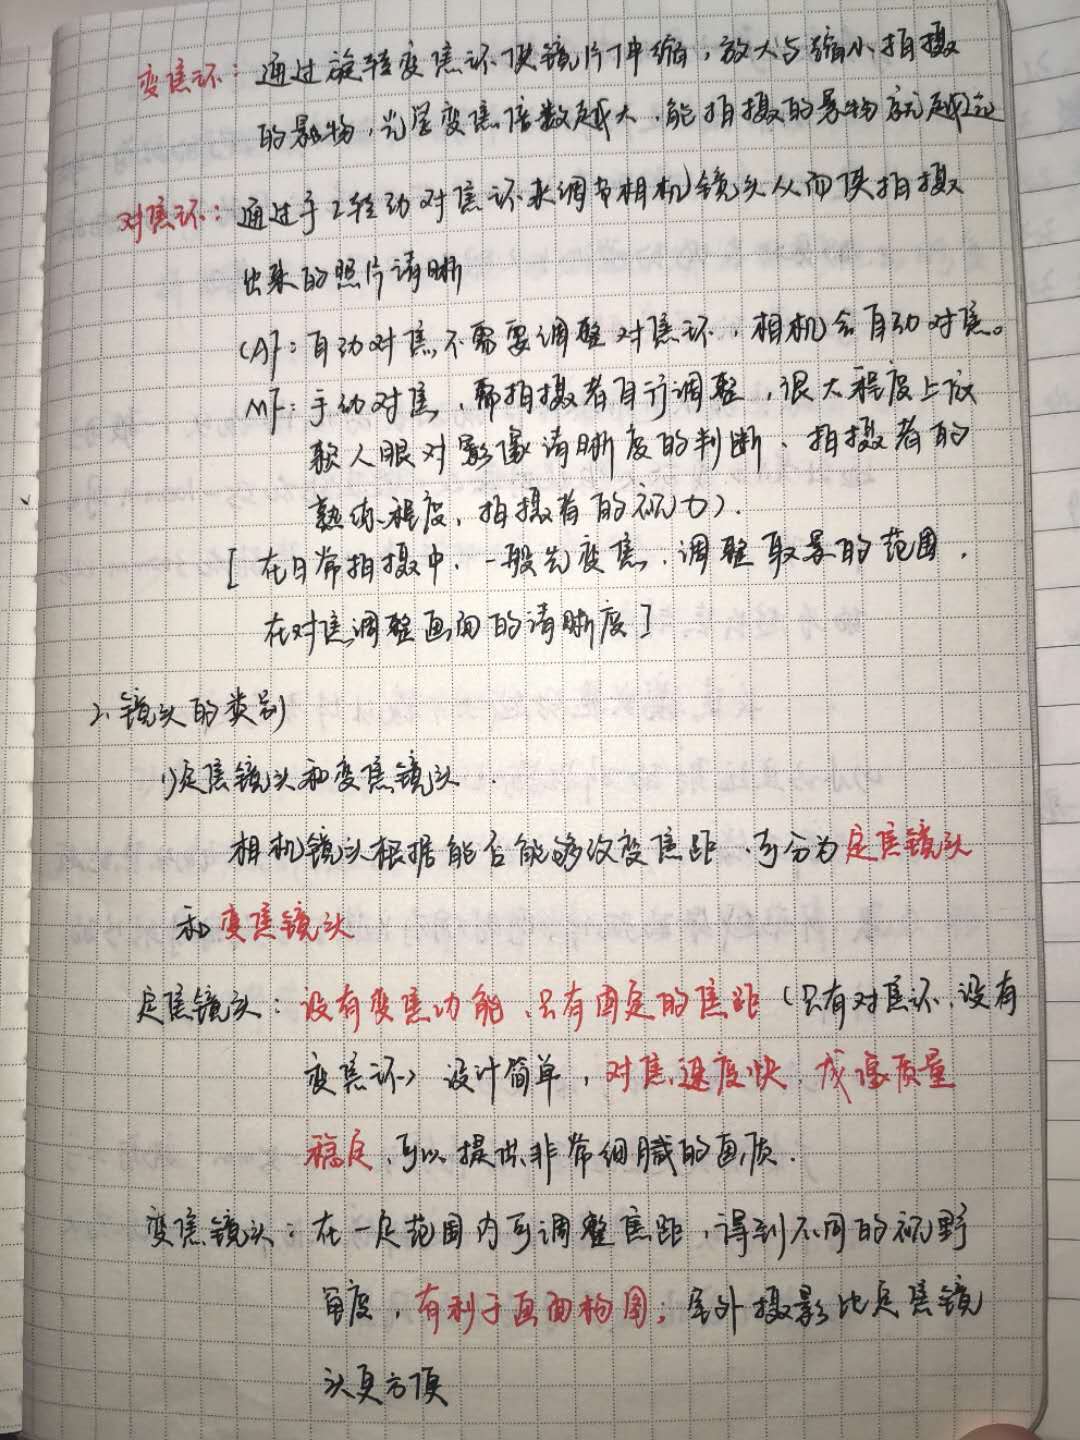 变焦环：通过旋转变焦环使镜片伸缩，放大与缩小拍摄
的景物，光学变焦倍数越大，能拍摄的景物就越远
对焦环：通过手工转动对焦环来调节相机镜头从而使拍摄
出来的照片清晰
(AF：自动对焦，不需要调整对焦环，相机会自动对焦。
MF：手动对焦，需拍摄者自行调整，很大程度上依
赖人眼对影像清晰度的判断、拍摄者的
熟练程度，拍摄者的视力）.
[在日常拍摄中，一般先变焦，调整取景的范围，
在对焦调整画面的清晰度]
2.镜头的类别
1)定焦镜头和变焦镜头.
相机镜头根据能否能够改变焦距，可分为定焦镜头
和变焦镜头
定焦镜头：没有变焦功能，只有固定的焦距（只有对焦环，没有
变焦环）设计简单，对焦速度快，成像质量
稳定，可以提供非常细腻的画质.
变焦镜头：在一定范围内可调整焦距，得到不同的视野
角度，有利于画面构图；室外摄影比定焦镜
头更方便